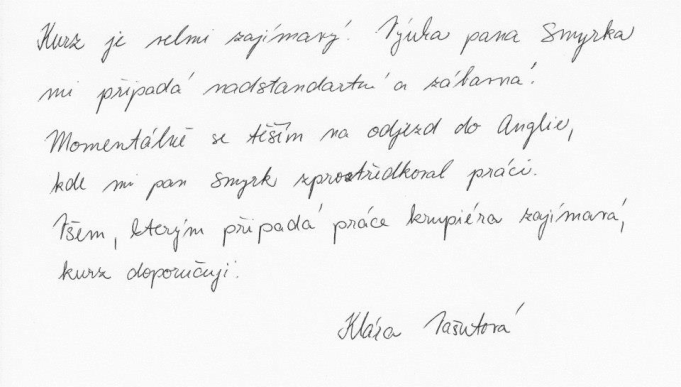 Kurz je velmi zajímavý! Výuka pana Smyrka
mi připadá nadstandartní a zábavná!
Momentálně se těším na odjezd do Anglie,
kde mi pan Smyrk zprostředkoval práci.
Všem, kterým připadá práce krupiéra zajímavá,
kurz doporučuji.
Klára Vašutová